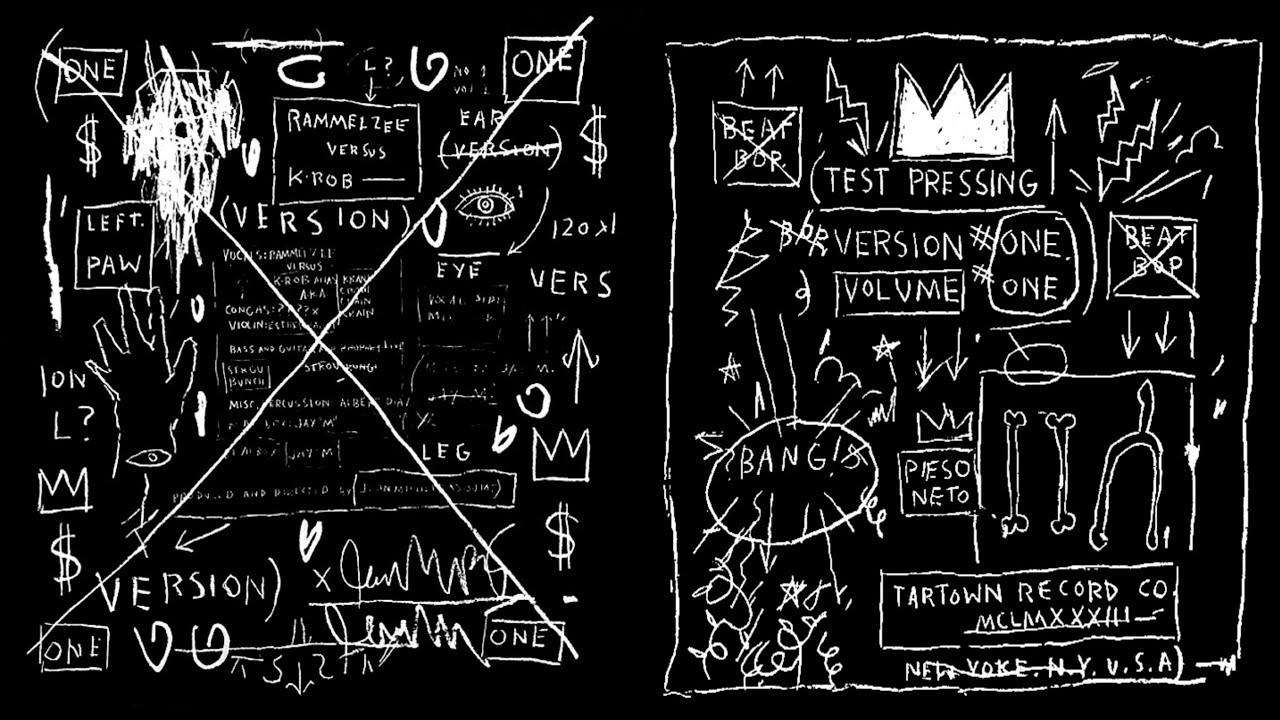 ONE
(VERSION)
L?
NO 1
VOL 1
ONE
$
RAMMELZEE
VERSUS
K·ROB —
EAR
(VERSION)
$
LEFT.
PAW
(VERSION)
120
VERS
EYE
VOCALS: RAMMELZEE
VERSUS
K-ROB ALIAS
AKA
CONGAS:
VIOLIN: ESTHER
BASS AND GUITAR
STROU
BUNCH
MISC. PERCUSSION: ALBERT DIAZ
JAY "M"
JAY M
ION
L?
LEG
PRODUCED AND DIRECTED BY
$
$
VERSION)
X
ONE
ONE
BEAT
BOP.
(TEST PRESSING
BOP VERSION #ONE.
VOLUME # ONE
BEAT
BOP
?BANG!
PIESO
NETO
TARTOWN RECORD CO
MCLMXXXIII—
NEW YOKE. N.Y. U.S.A)